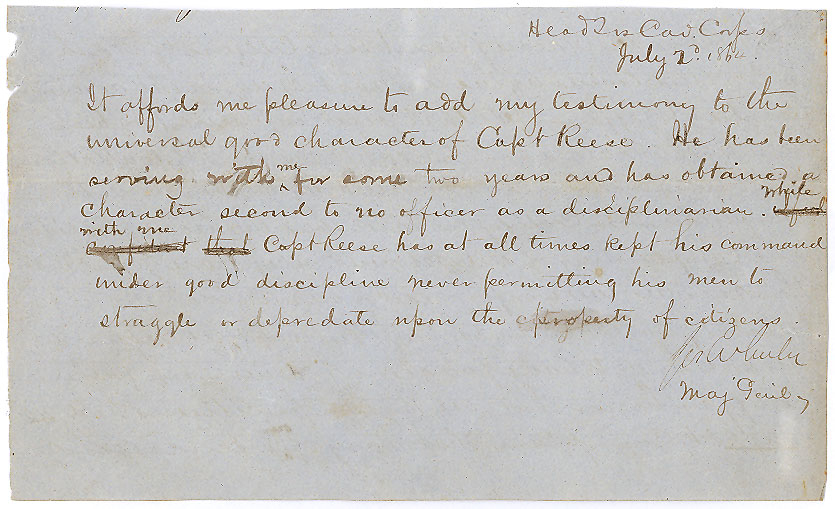 Head Qrs Cav. Corps
July 2d. 1864.
It affords me pleasure to add my testimony to the
universal good character of Capt Reese. He has been
serving with me for some two years and has obtained a
character second to no officer as a disciplinarian. while
with me Capt Reese has at all times kept his command
under good discipline never permitting his men to
straggle or depredate upon the property of citizens
Jos Wheeler
Maj Genl